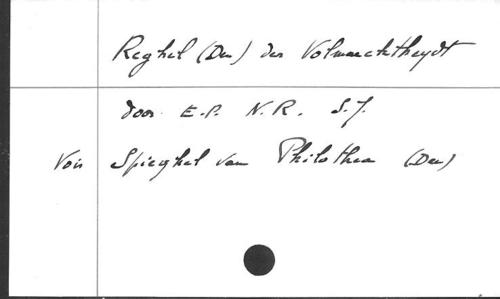 Reghel (Den) der Volmaecktheydt
door E.P. N.R. S.J.
Voir Spieghel van Philothea (Den)